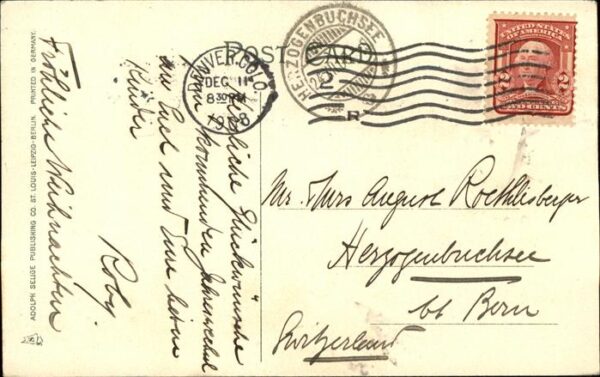 POST CARD
DENVER, COLO.
DEC 11
8 30 PM
1908
HERZOGENBUCHSEE
2
R
UNITED STATES
OF AMERICA
2 2
TWO CENTS
Mr. Mrs August Roethlisberger
Herzogenbuchsee
bt Bern
Switzerland
Herzliche Glückwünsche
kommenden Jahreswechsel
an Euch und Eure lieben
Kinder
Fröhliche Weihnachten
Roby
ADOLPH SELIGE PUBLISHING CO. ST. LOUIS-LEIPZIG-BERLIN. PRINTED IN GERMANY.